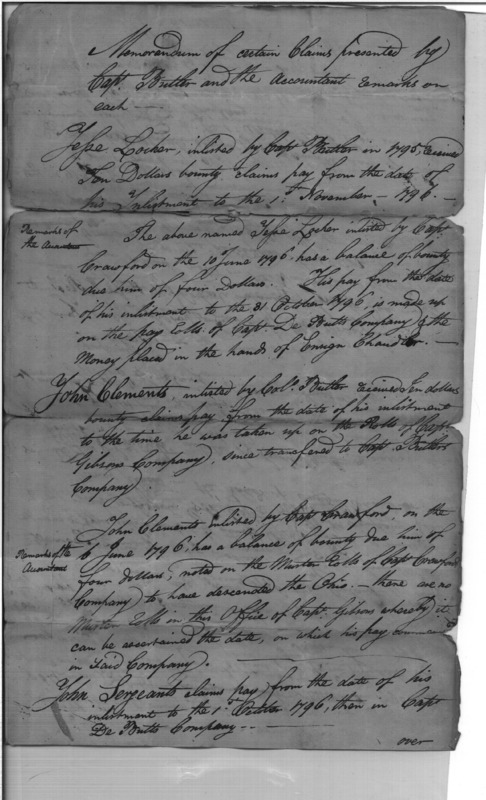 Memorandum of certain Claims presented by
Capt. Butler and the Accountant remarks on
each —
Jesse Locker, inlisted by Capt Butler in 1795, received
Ten Dollars bounty claims pay from the date of
his Inlistment to the 1st November — 1796. —
Remarks of
the Accountant
The above named Jesse Locker inlisted by Capt.
Crawford on the 10 June 1796 has a balance of bounty
due him of four Dollars. His pay from the date
of his inlistment to the 31 October 1796 is made up
on the pay Rolls of Capt. De Butts Company & the
Money placed in the hands of Ensign Chandler. —
John Clements, inlisted by Capt. Butler received Ten dollars
bounty claims pay from the date of his inlistment
to the time he was taken up on the Rolls of Capt
Gibsons Company, since transfered to Capt. Butlers
Company.
John Clements inlisted by Capt Crawford, on the
Remarks of the
Accountant
6 June 1796, has a balance of bounty due him of
four dollars, noted on the Muster Rolls of Capt Crawford
Company to have descended the Ohio. — there are no
Muster Rolls in this Office of Capt. Gibsons whereby it
can be ascertained the date, on which his pay
in said Company.
John Sergeants claims pay from the date of his
inlistment to the 1st October 1796, then in Capt
De Butts Company. —
over